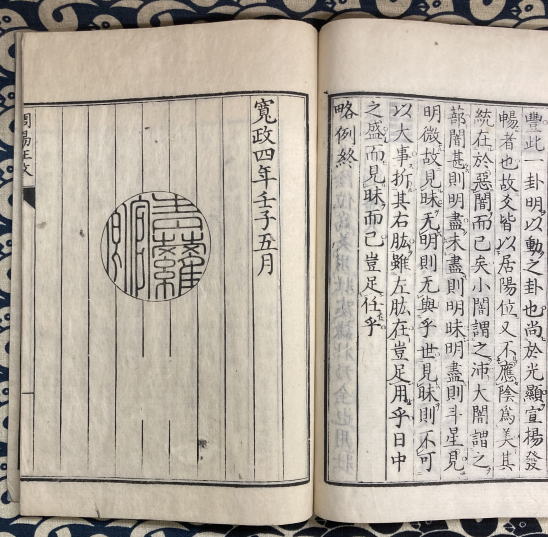 豐此一卦明以動之卦也尚於光顯宣揚發
暢者也故爻皆以居陽位又不應陰爲美其
統在於惡闇而已矣小闇謂之沛大闇謂之
蔀闇甚則明盡未盡則明昧明盡則斗星見
明微故見昧无明則无與乎世見昧則不可
以大事折其右肱雖左肱在豈足用乎日中
之盛而見昧而已豈足任乎
略例終
寬政四年壬子五月
青蘿